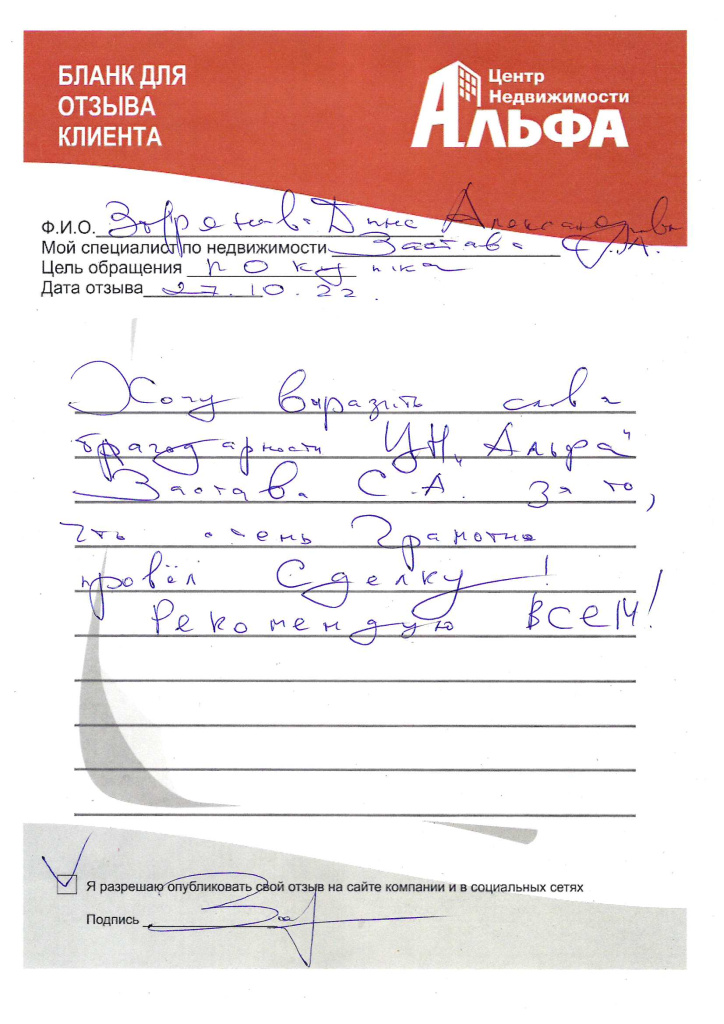 БЛАНК ДЛЯ
ОТЗЫВА
КЛИЕНТА
Центр
Недвижимости
АЛЬФА
Ф.И.О. Дина Александровна
Мой специалист по недвижимости Застава С.А.
Цель обращения покупка
Дата отзыва 27.10.22.
Хочу выразить слова
благодарности ЦН "Альфа"
Застава С.А. за то,
что очень грамотно
провёл сделку!
Рекомендую ВСЕМ!
Я разрешаю опубликовать свой отзыв на сайте компании и в социальных сетях
Подпись